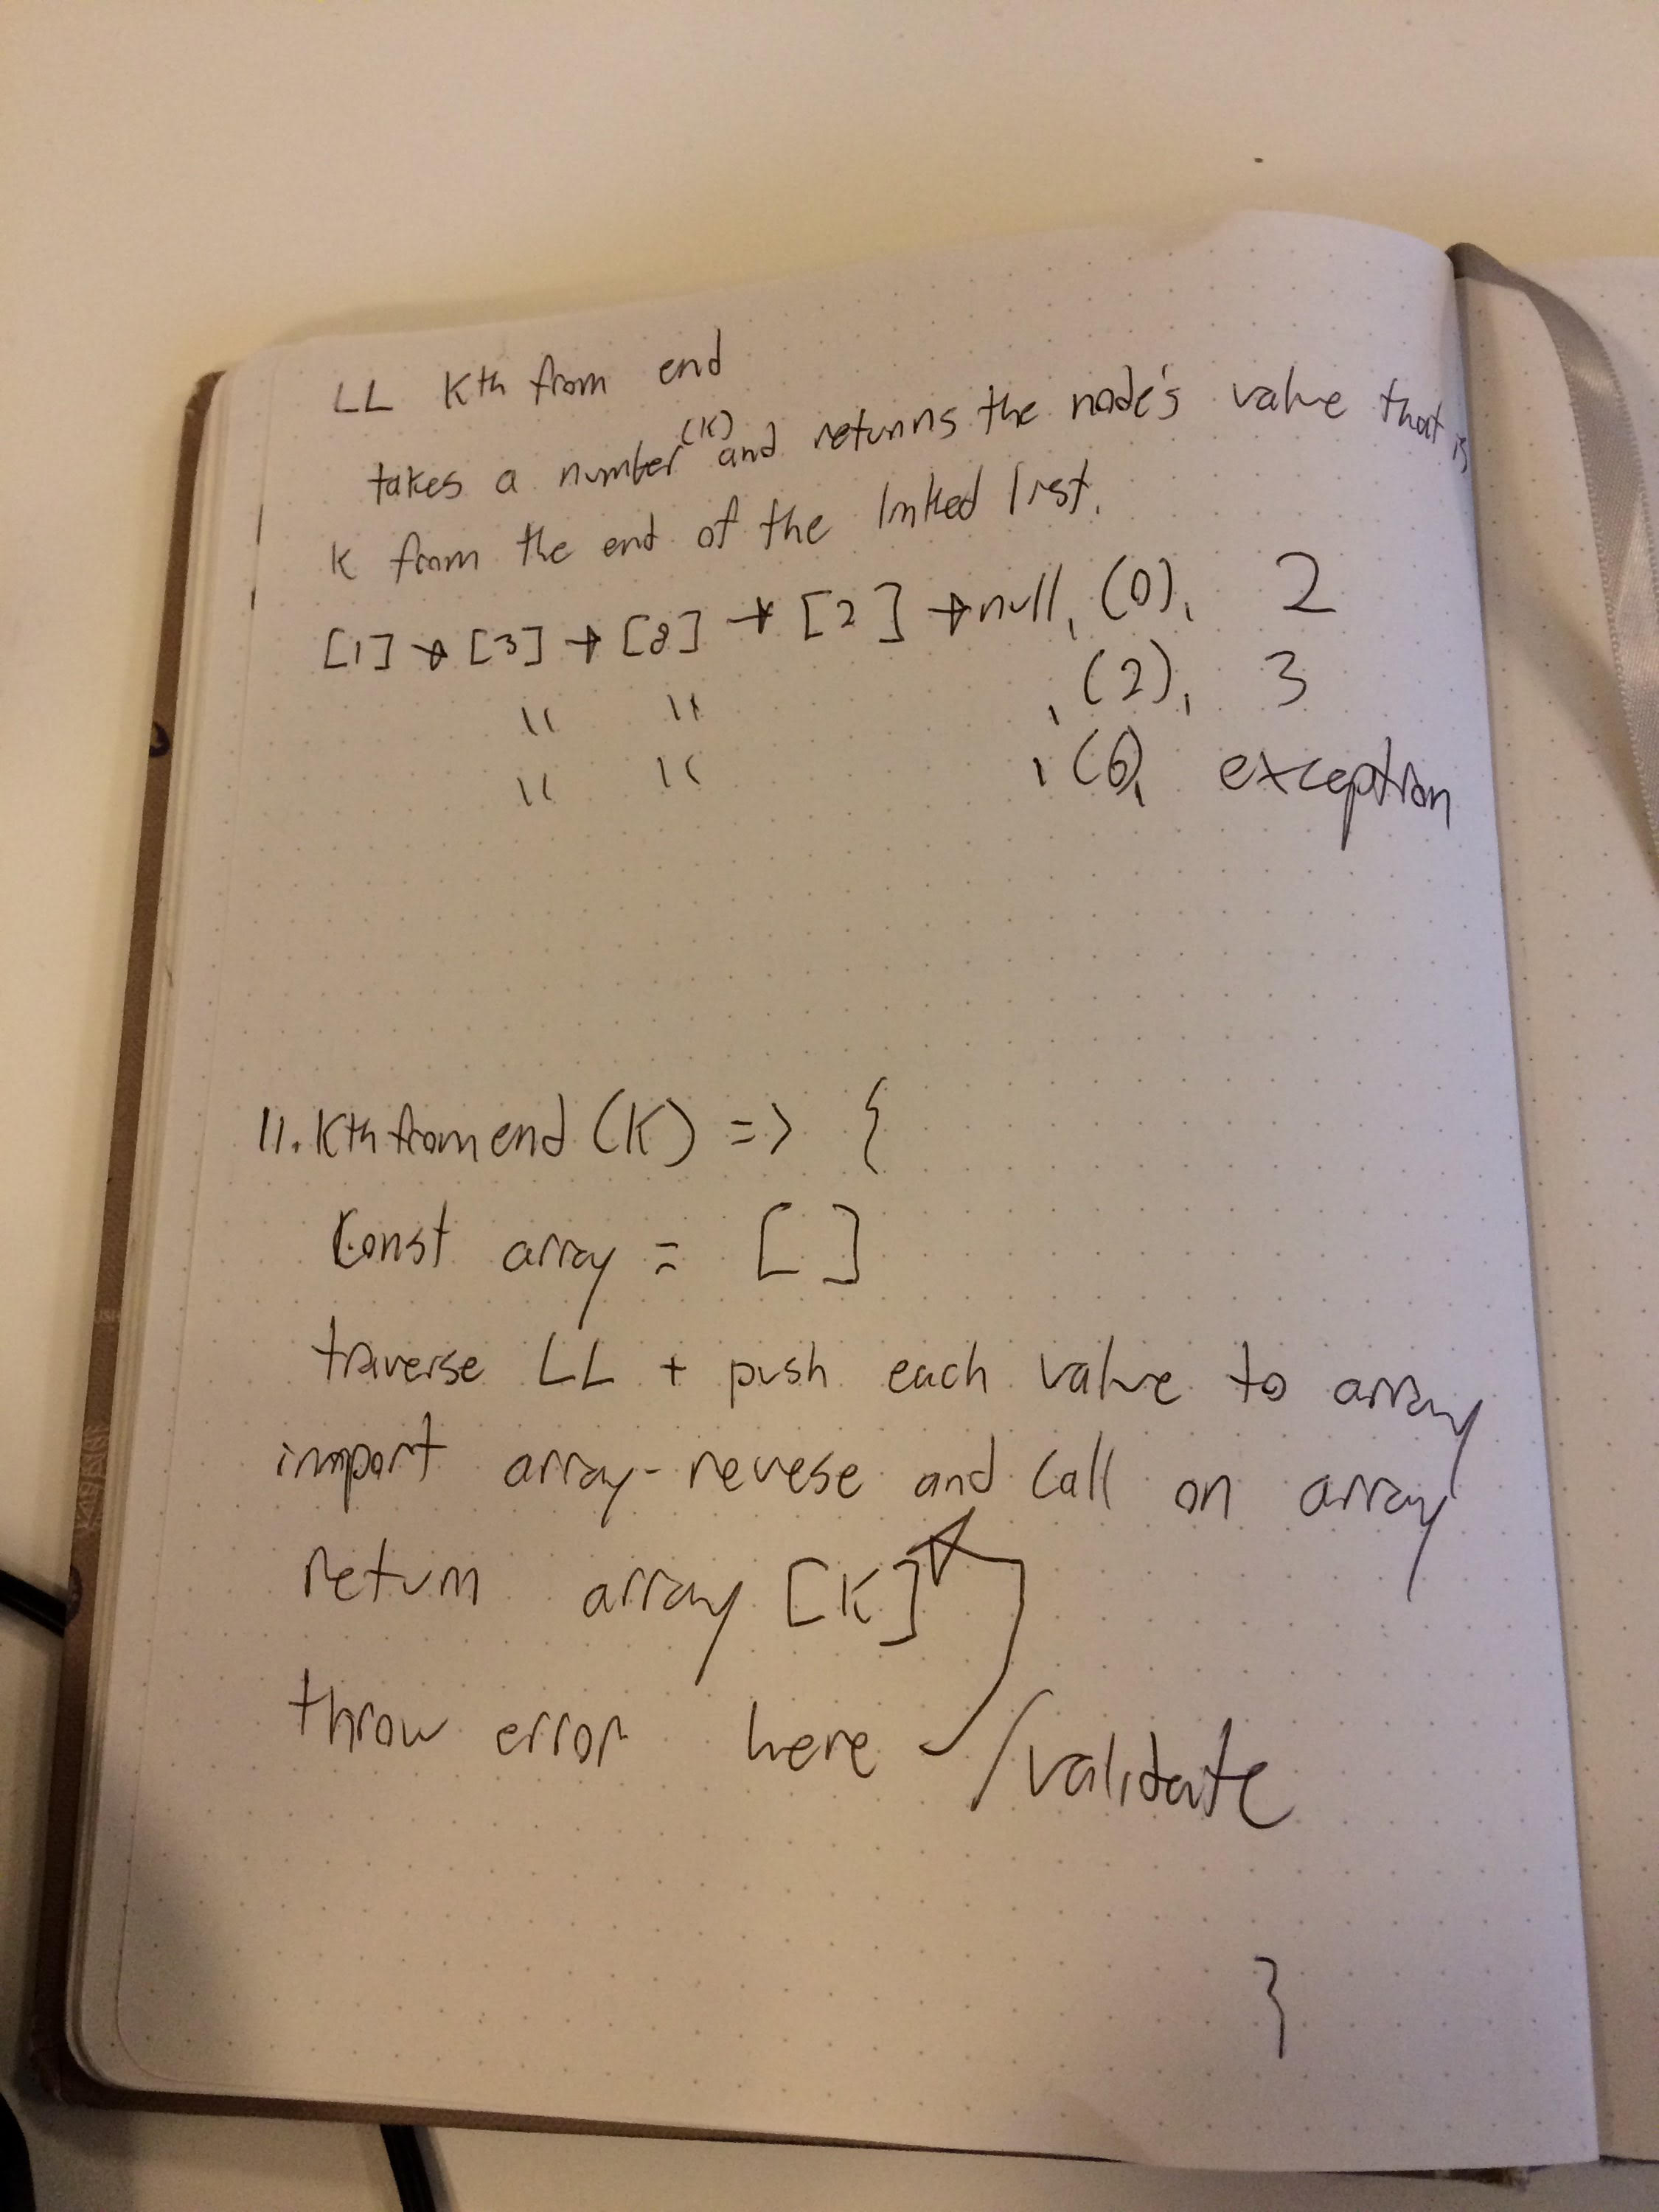 LL Kth from end
takes a number (K) and returns the node's value that is
K from the end of the linked list.
[1] → [3] → [8] → [2] → null, (0), 2
" " , (2), 3
" " , (6), exception
ll.Kthfromend (K) => {
Const array = [ ]
traverse LL + push each value to array
import array-revese and call on array
return array [K]
throw error here /validate
}